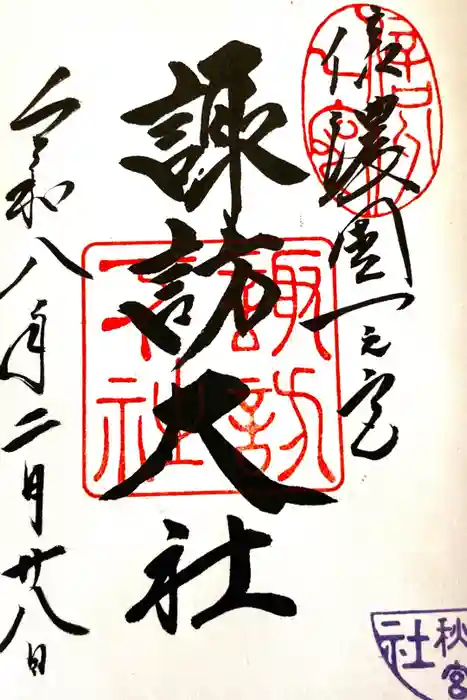 信濃國一之宮
諏訪大社
令和八年二月廿八日
諏訪大社
秋宮
社